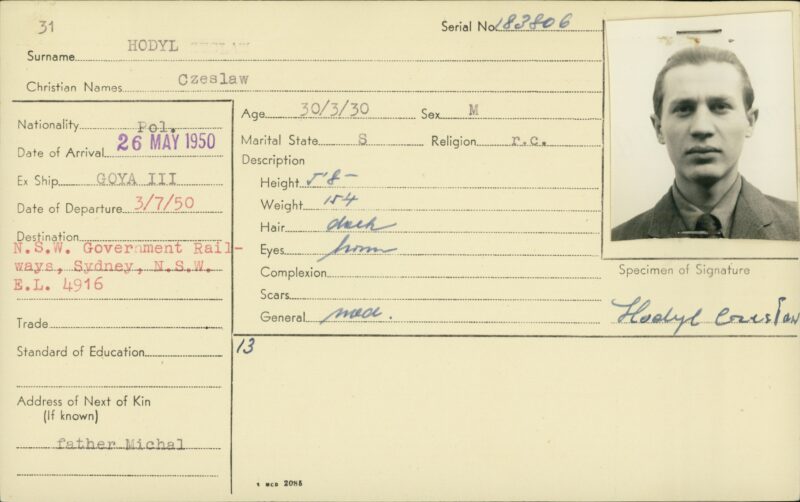 31
Serial No. 183806
Surname HODYL
Christian Names Czeslaw
Nationality Pol.
Date of Arrival 26 MAY 1950
Ex Ship GOYA III
Date of Departure 3/7/50
Destination
N.S.W. Government Rail-
ways, Sydney, N.S.W.
E.L. 4916
Trade
Standard of Education
Address of Next of Kin
(If known)
father Michal
Age 30/3/30 Sex M
Marital State S Religion r.c.
Description
Height 5'8-
Weight 154
Hair dark
Eyes brown
Complexion
Scars
General med.
Specimen of Signature
Hodyl Czeslaw
13